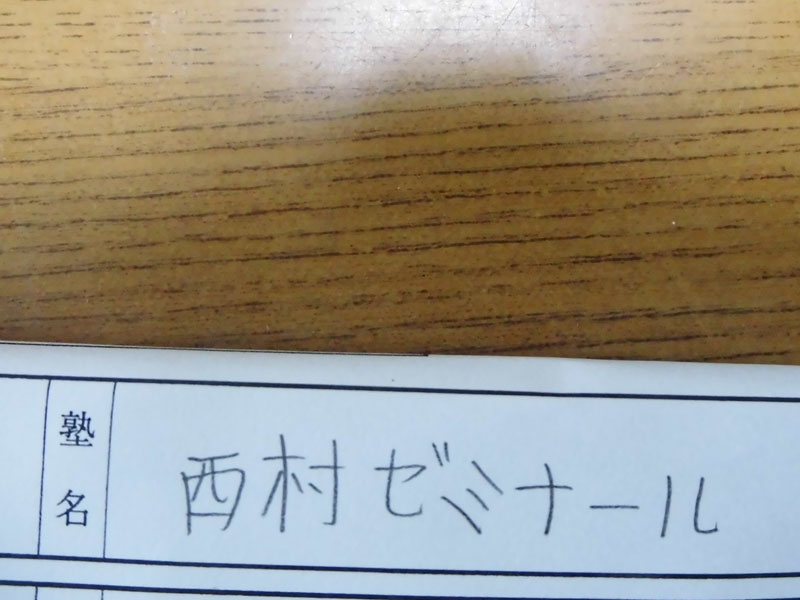 塾名
西村ゼミナール